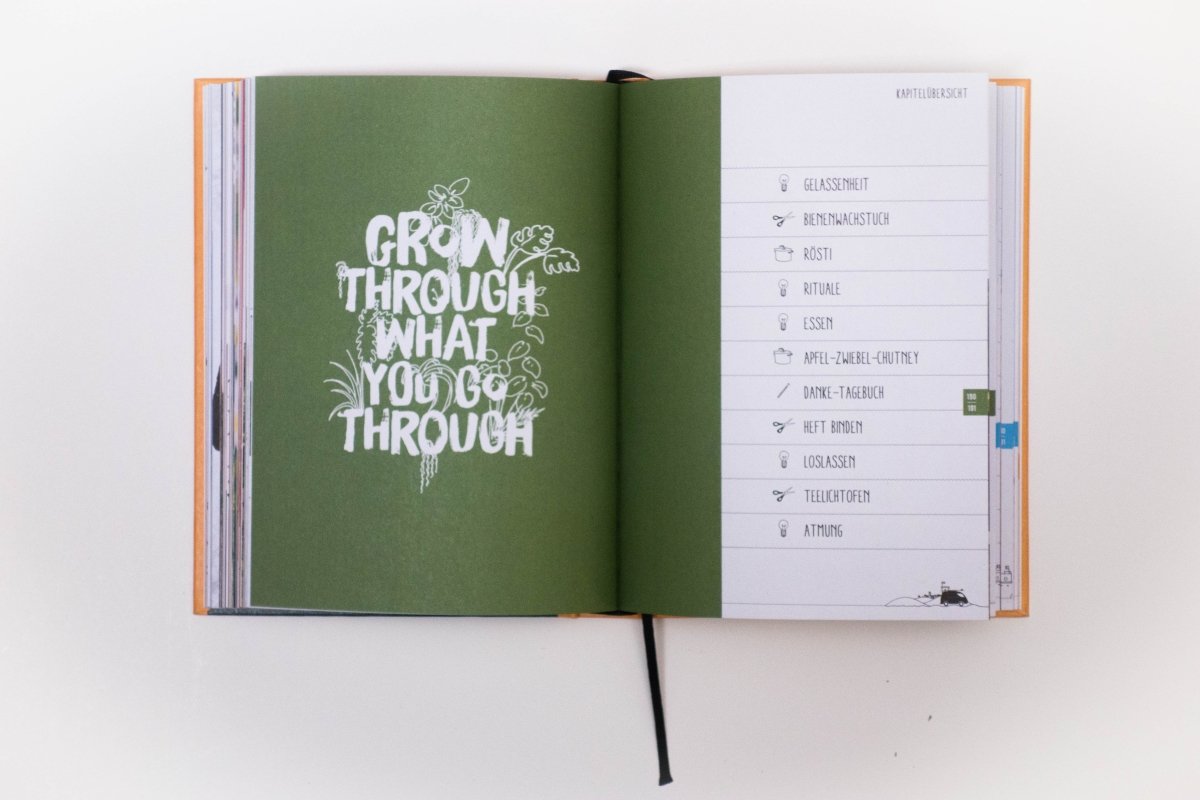 GROW
THROUGH
WHAT
YOU GO
THROUGH
KAPITELÜBERSICHT
GELASSENHEIT
BIENENWACHSTUCH
RÖSTI
RITUALE
ESSEN
APFEL-ZWIEBEL-CHUTNEY
DANKE-TAGEBUCH
HEFT BINDEN
LOSLASSEN
TEELICHTOFEN
ATMUNG